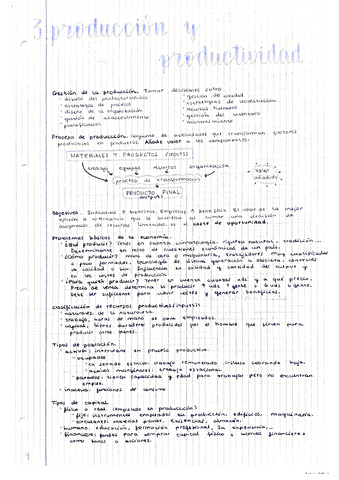 3. producción y
productividad
Gestión de la producción. Tomar decisiones sobre
· diseño del producto/servicio · gestión de calidad
· estrategia de proceso · estrategias de localización
· diseño de la organización · recursos humanos
· gestión de abastecimiento · gestión del inventario
· planificación · mantenimiento
Proceso de producción. Conjunto de actividades que transforman factores
productivos en productos. Añade valor a los componentes.
MATERIALES Y PRODUCTOS (inputs)
trabajo equipos recursos organización
proceso de transformación
valor
añadido
PRODUCTO FINAL
(output)
Objetivos.
coste de oportunidad.
Problemas básicos de la economía.
· ¿Qué producir? Tener en cuenta climatología, riqueza natural, tradición...
Determinante en nivel de cuestiones económicas de un país.
· ¿Cómo producir? mano de obra o maquinaria, trabajadores muy cualificados
o poco formados, tecnología de última generación u obsoleta, controles
de calidad o sin. Influencia en calidad y cantidad del output y
en los costes de producción
· ¿Para quién producir? Tener en cuenta
Precio de venta determina si producir
debe ser suficiente para cubrir costes y generar beneficios.
Clasificación de recursos productivos (inputs)
· naturales: de la naturaleza.
· trabajo: horas de mano de obra empleadas.
· capital: bienes duraderos producidos por el hombre que sirven para
producir otros bienes.
Tipos de población.
· activa: intervienen en proceso productivo.
· ocupados
· En sentido estricto: trabajo remunerado
· activos marginales: trabajo estacional.
· parados: tienen capacidad y edad para trabajar pero no encuentran
empleo.
· inactiva: funciones de consumo
Tipos de capital
· físico o real (empleado en producción)
· fijo: instrumentos empleados en producción, edificios, maquinaria.
· circulante: materias primas, existencias, almacén.
· humano: educación, formación profesional, la experiencia...
· financiero: fondos para comprar capital físico o activos financieros
como bonos o acciones.